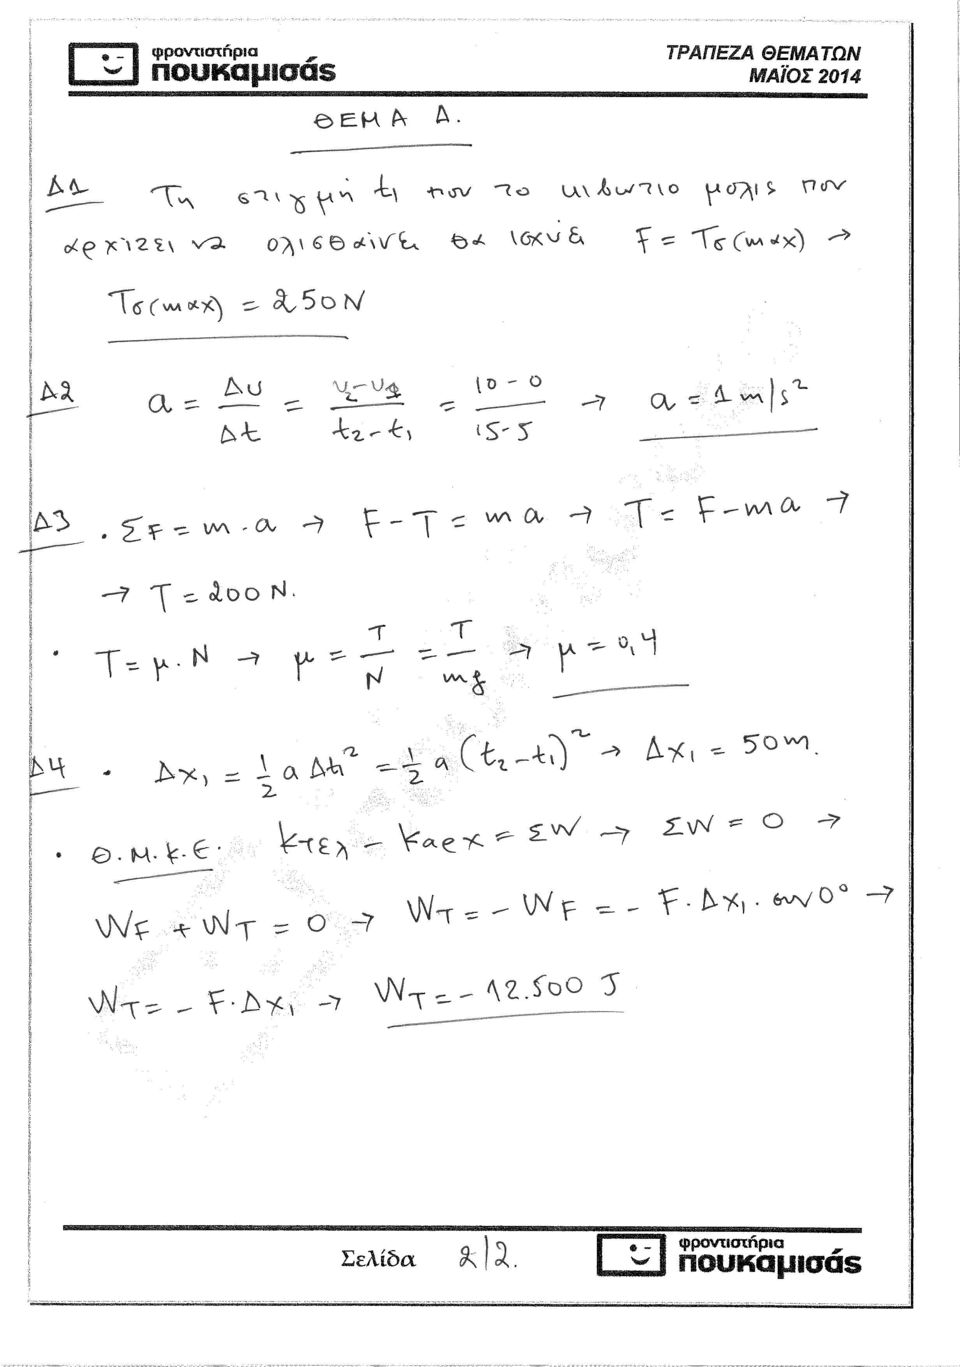 φροντιστήρια
πουκαμισάς
ΤΡΑΠΕΖΑ ΘΕΜΑΤΩΝ
ΜΑΪΟΣ 2014
ΘΕΜΑ Δ.
Δ1 Τη στιγμή t₁ που το κιβωτιο μολις που
αρχίζει να ολισθαίνει θα ισχύει F = Tσ(max) →
Tσ(max) = 250 N
Δ2 a = Δυ/Δt = (υ₂-υ₁)/(t₂-t₁) = (10-0)/(15-5) → a = 1 m/s²
Δ3 · ΣF = m·a → F - T = ma → T = F - ma →
→ T = 200 N.
· T = μ·N → μ = T/N = T/mg → μ = 0,4
Δ4 · Δx₁ = ½ a Δt₁² = ½ a (t₂-t₁)² → Δx₁ = 50m.
· Θ.Μ.Κ.Ε. Kτελ - Kαρχ = ΣW → ΣW = 0 →
W_F + W_T = 0 → W_T = - W_F = - F·Δx₁·συν0° →
W_T = - F·Δx₁ → W_T = - 12.500 J
Σελίδα 2/2.
φροντιστήρια
πουκαμισάς